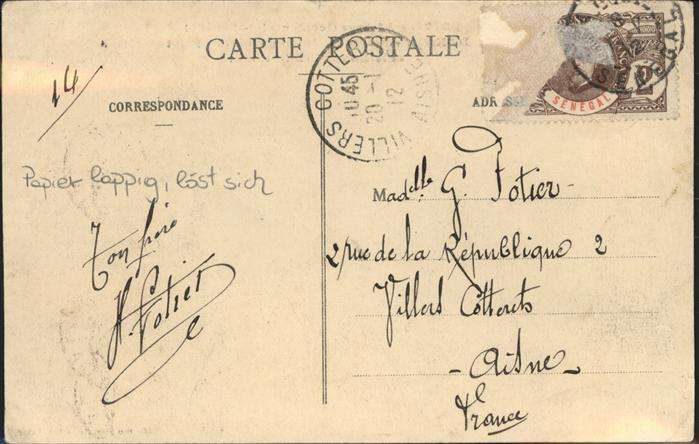 CARTE POSTALE
14
CORRESPONDANCE
ADR
VILLERS COTTE
AISNE
10 45
20 -1
12
SENEGAL
2
Papier lappig, löst sich
Ton frère
H. Potier
Madelle G. Potier
2 rue de la République 2
Villers Cotterets
- Aisne -
France